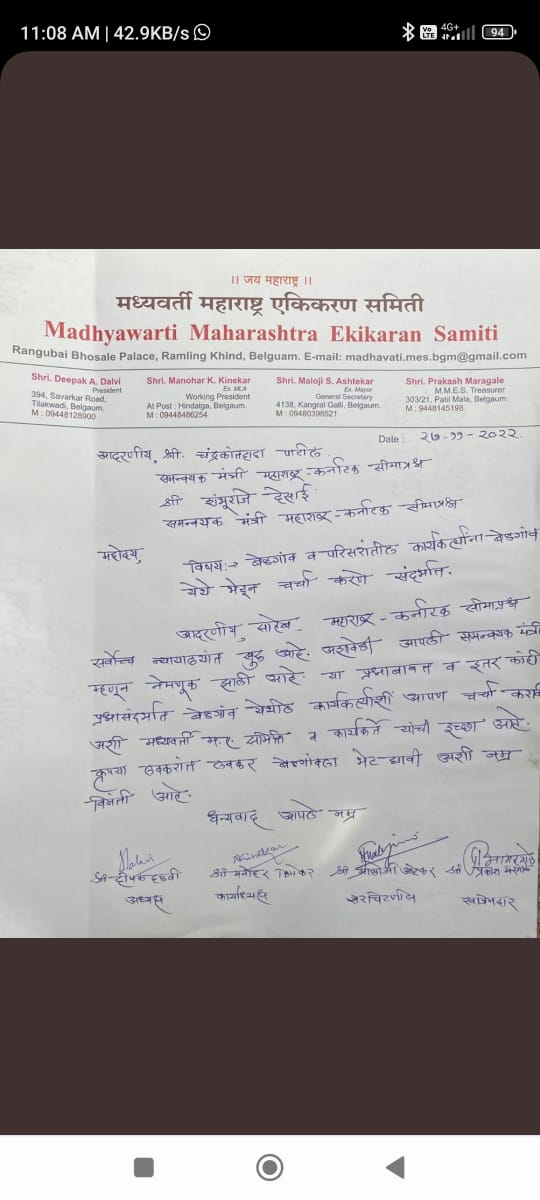 11:08 AM | 42.9KB/s
Vo LTE 4G+ 94
।। जय महाराष्ट्र ।।
मध्यवर्ती महाराष्ट्र एकिकरण समिती
Madhyawarti Maharashtra Ekikaran Samiti
Rangubai Bhosale Palace, Ramling Khind, Belguam. E-mail: madhavati.mes.bgm@gmail.com
Shri. Deepak A. Dalvi
President
394, Savarkar Road,
Tilakwadi, Belgaum.
M : 09448128900
Shri. Manohar K. Kinekar
Ex. MLA
Working President
At Post : Hindalga, Belgaum.
M : 09448486254
Shri. Maloji S. Ashtekar
Ex. Mayor
General Secretary
4138, Kangrai Galli, Belgaum.
M : 09480398521
Shri. Prakash Maragale
M.M.E.S. Treasurer
303/21, Patil Mala, Belgaum.
M : 9448145198
Date : २७-११-२०२२.
आदरणीय, श्री. चंद्रकांतदादा पाटील
समन्वयक मंत्री महाराष्ट्र-कर्नाटक सीमाप्रश्न
श्री शंभूराजे देसाई
समन्वयक मंत्री महाराष्ट्र-कर्नाटक सीमाप्रश्न
महोदय,
विषय:- बेळगांव व परिसरांतील कार्यकर्त्यांना बेळगांव
येथे भेटून चर्चा करणे संदर्भात.
आदरणीय, साहेब महाराष्ट्र - कर्नाटक सीमाप्रश्न
सर्वोच्च न्यायालयांत सुरु आहे. आपली समन्वयक मंत्री
म्हणून नेमणूक झाली आहे. या प्रश्नाबाबत व इतर कांही
प्रश्नासंदर्भात बेळगांव येथील कार्यकर्त्यांशी आपण चर्चा करावी
अशी मध्यवर्ती म.ए. समिती व कार्यकर्ते यांची इच्छा आहे.
कृपया लवकरांत लवकर बेळगांवला भेट द्यावी अशी नम्र
विनंती आहे.
धन्यवाद आपले नम्र
श्री दीपक दळवी
अध्यक्ष
श्री मनोहर किणेकर
कार्याध्यक्ष
श्री मालोजी अष्टेकर
सरचिटणीस
श्री प्रकाश मरगाळे
खजिनदार